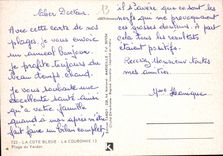 Cher Docteur.
Avec cette carte de nos
plages, je vous envoie
un amical Bonjour.
Je profite toujours du
beau temps chaud.
Je vous souhaite une
excellente santé ainsi
qu'à votre famille
quand à moi
avec pas un bilan complet
il s'avère que ce sont les
nerfs qui me provoquaient
ces grosses douleurs. À
part cela tous les résultats
étaient positifs.
Recevez Docteur toutes
mes amitiés
Mme
722 - LA COTE BLEUE - LA COURONNE 13
Plage du Verdon
MARSEILLE